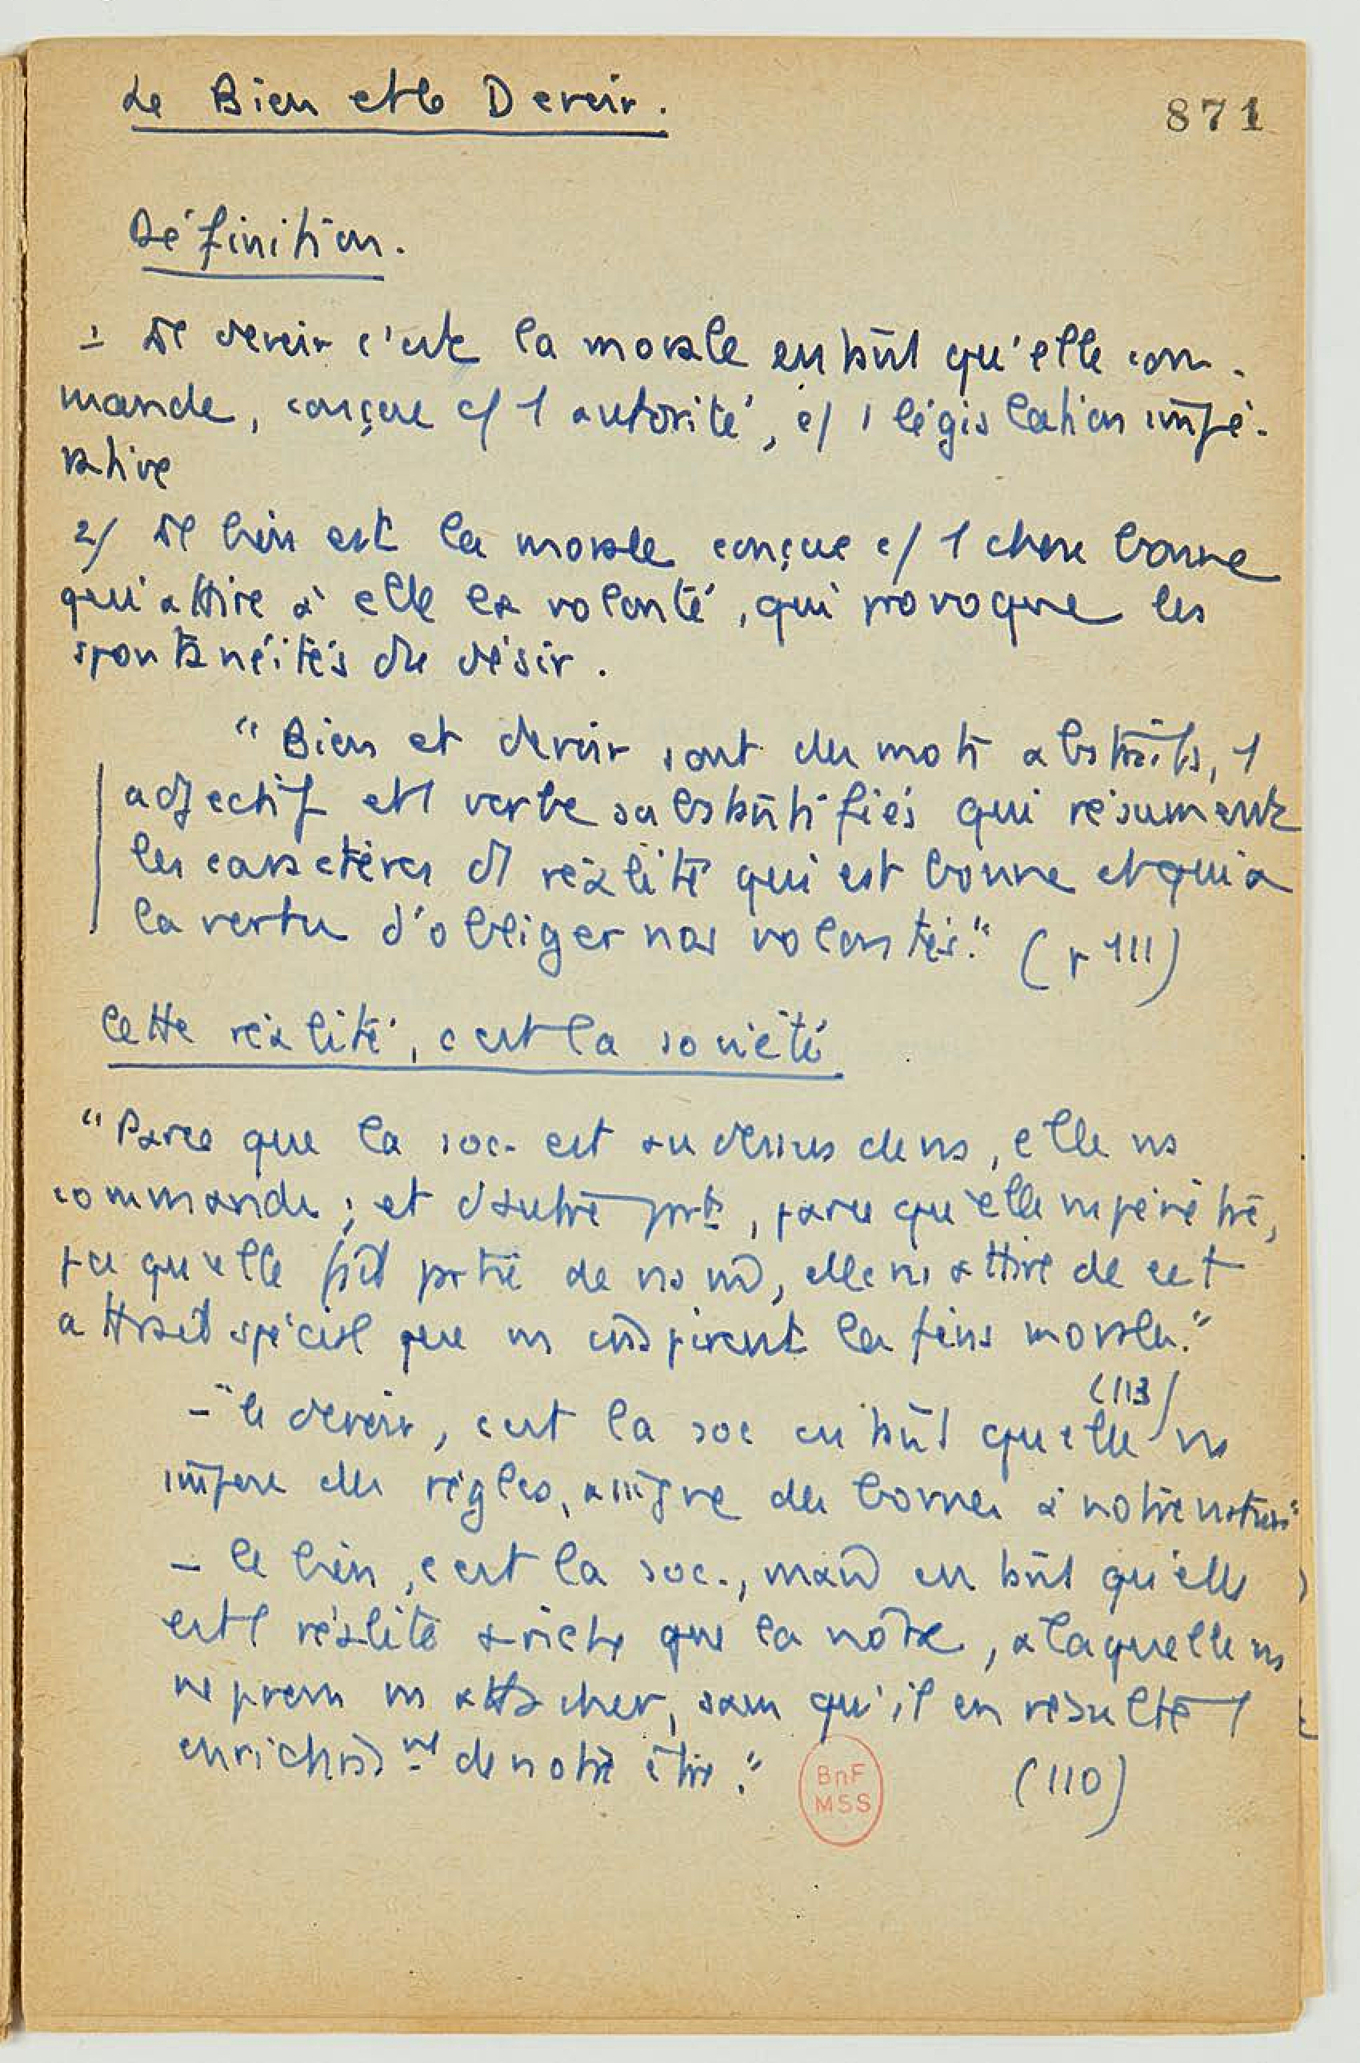 Le Bien et le Devoir.
871
Définition.
1 Le devoir c'est la morale en tant qu'elle com-
mande, conçue c/ 1 autorité, c/ 1 législation impé-
rative
2/ Le bien est la morale conçue c/ 1 chose bonne
qui attire à elle la volonté, qui provoque les
spontanéités du désir.
"Bien et devoir sont des mots abstraits, 1
adjectif et 1 verbe substantifiés qui résument
les caractères d'1 réalité qui est bonne et qui a
la vertu d'obliger nos volontés." (p 111)
Cette réalité, c'est la société
"Parce que la soc. est au dessus de ns, elle ns
commande ; et d'autre part, parce qu'elle ns pénètre,
pce qu'elle fait partie de ns, elle ns attire de cet
attrait spécial que ns inspirent les fins morales."
(113)
- "le devoir, c'est la soc en tant qu'elle ns
impose des règles, assigne des bornes à notre nature"
- le bien, c'est la soc., mais en tant qu'elle
est 1 réalité + riche que la nôtre, à laquelle ns
ne pvons ns attacher, sans qu'il en résulte 1
enrichisst de notre être."
(110)
BnF
MSS